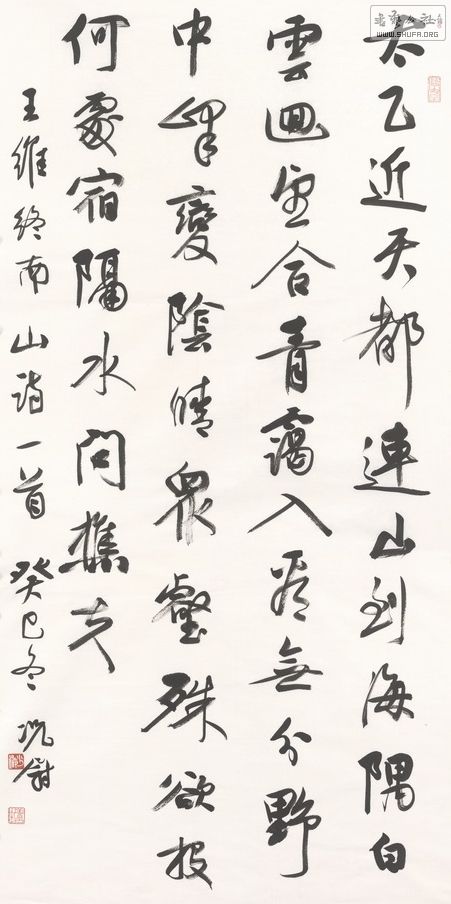 太乙近天都連山到海隅白
雲迴望合青靄入看無分野
中峰變陰晴眾壑殊欲投
何處宿隔水問樵夫
王維終南山詩一首 癸巳冬
WWW.SHUFA.ORG